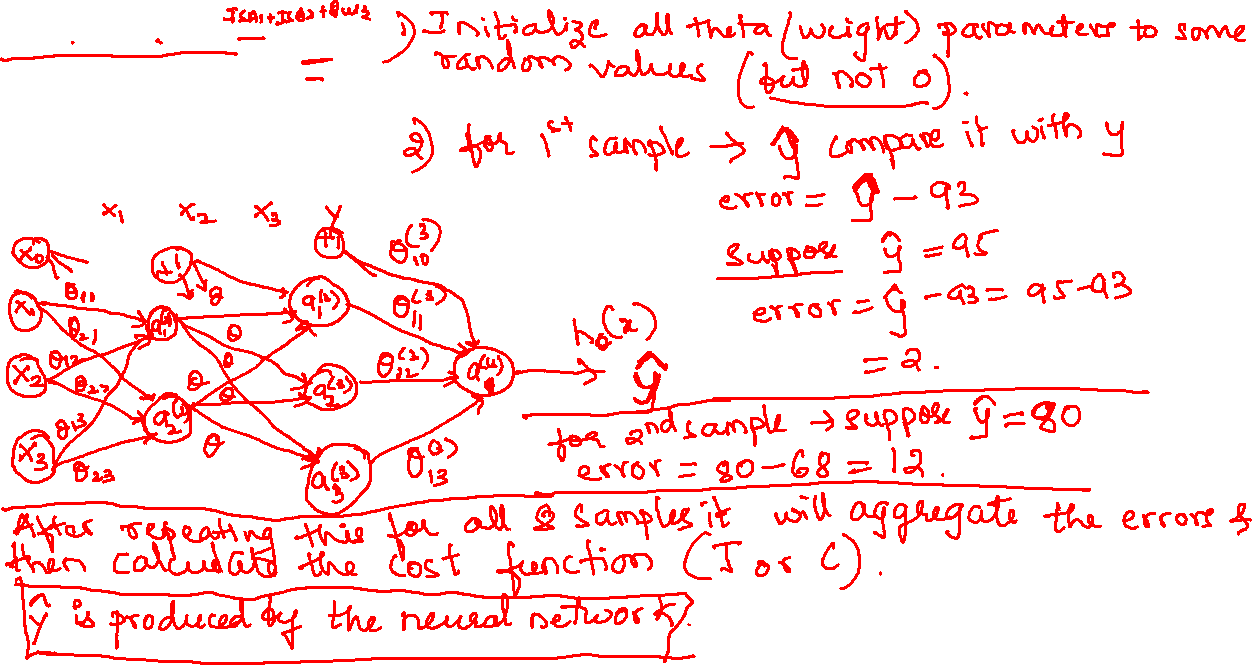 1) Initialize all theta (weight) parameters to some
random values (but not 0).
2) for 1st sample → ŷ compare it with y
error = ŷ - 93
suppose ŷ = 95
error = ŷ - 93 = 95-93
= 2.
x₁ x₂ x₃ y
x₀ +1 +1 θ₁₀⁽³⁾
x₁ θ₁₁ θ a₁⁽³⁾ θ₁₁⁽³⁾
θ₂₁ a₁⁽²⁾ θ hθ(x)
x₂ θ₁₂ θ₂₂ θ θ θ a₂⁽³⁾ θ₁₂⁽³⁾ a⁽⁴⁾ ŷ
θ₁₃ a₂⁽²⁾ θ
x₃ θ₂₃ a₃⁽³⁾ θ₁₃⁽³⁾
for 2nd sample → suppose ŷ = 80
error = 80-68 = 12.
After repeating this for all 8 samples it will aggregate the errors &
then calculate the cost function (J or C).
ŷ is produced by the neural network.